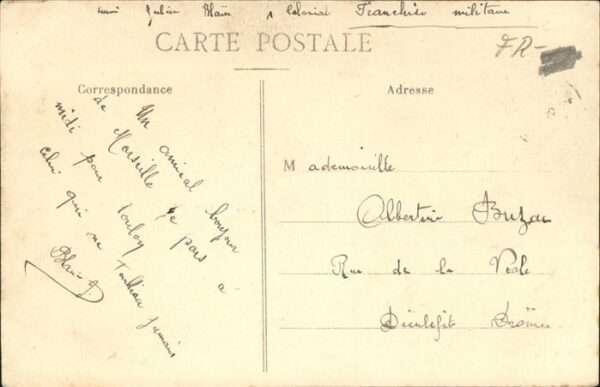 Julien Blain Colonial Franchise militaire
CARTE POSTALE
FR-
Correspondance
Adresse
Un amical bonjour
de Marseille je pars à
midi pour Toulon
celui qui ne jamais
Blain
Mademoiselle
Albertine Buzan
Rue de la Viale
Dieulefit Drôme